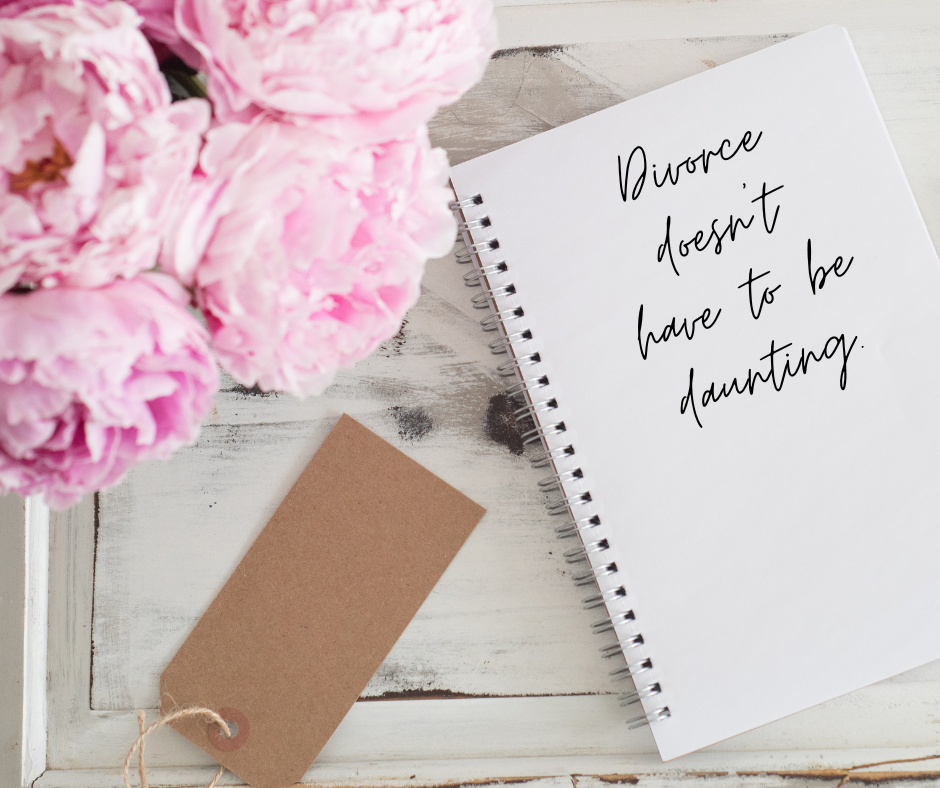 Divorce
doesn't
have to be
daunting.